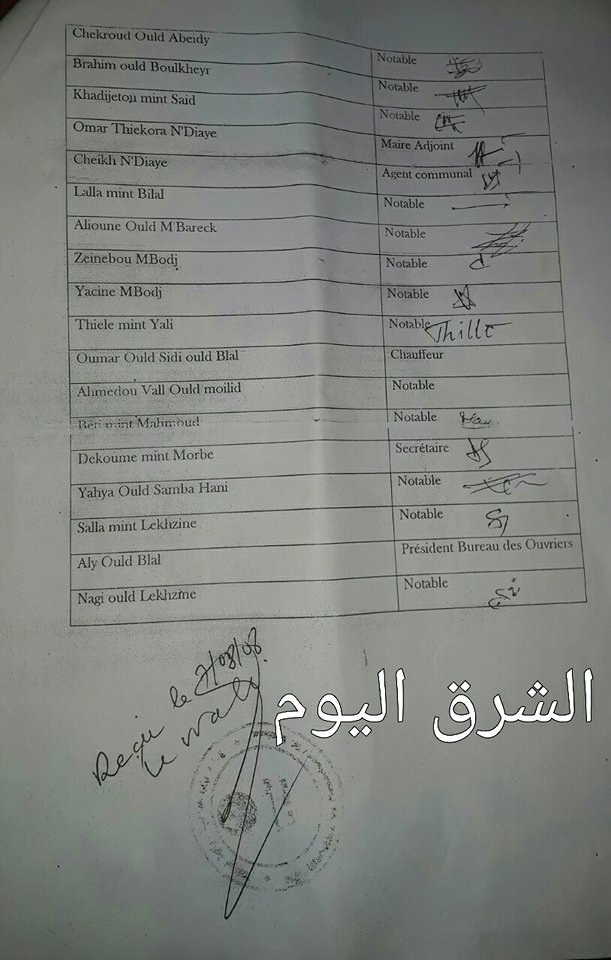 Chekroud Ould Abeidy
Notable
Brahim ould Boulkheyr
Notable
Khadijetou mint Said
Notable
Omar Thiekora N'Diaye
Maire Adjoint
Cheikh N'Diaye
Agent communal
Lalla mint Bilal
Notable
Alioune Ould M'Bareck
Notable
Zeinebou MBodj
Notable
Yacine MBodj
Notable
Thiele mint Yali
Notable Thille
Oumar Ould Sidi ould Blal
Chauffeur
Ahmedou Vall Ould moilid
Notable
mint Mahmoud
Notable
Dekoume mint Morbe
Secrétaire
Yahya Ould Samba Hani
Notable
Salla mint Lekhzine
Notable
Aly Ould Blal
Président Bureau des Ouvriers
Nagi ould Lekhzine
Notable
Reçu le 7/08/08
Le wali
الشرق اليوم